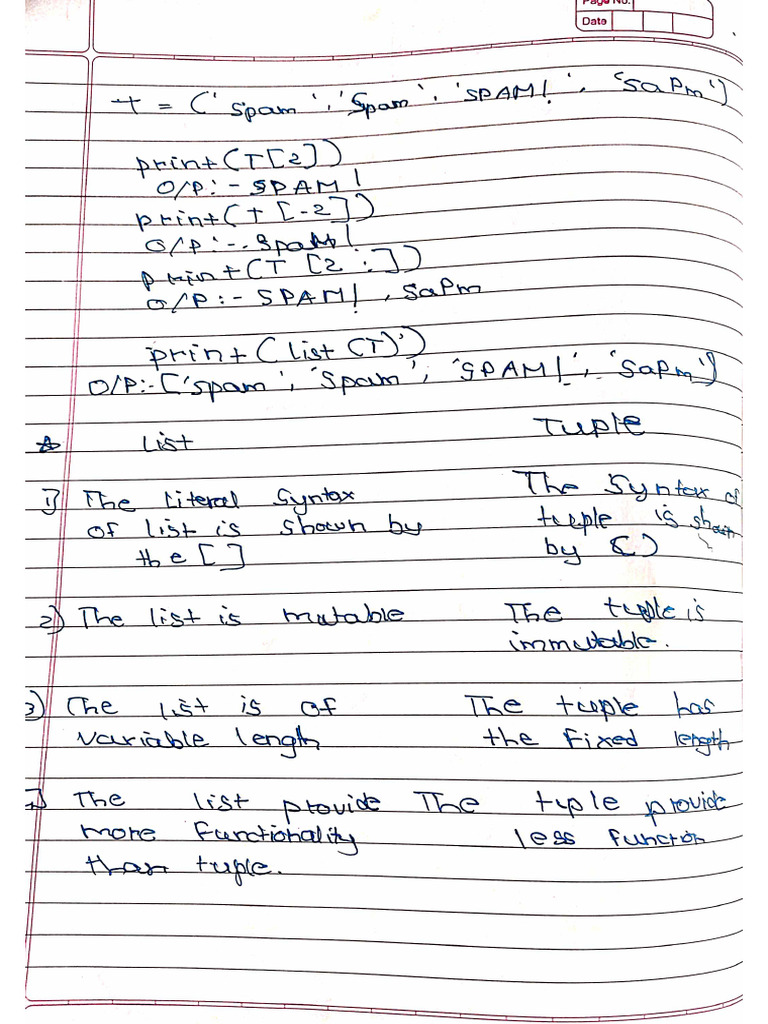 Page No.
Date
T = ('spam', 'Spam', 'SPAM!', 'SaPm')
print(T[2])
O/P:- SPAM!
print(T[-2])
O/P:-. SpaM!
print(T[2:])
O/P:- SPAM!, SaPm
print(list(T)')
O/P:-['spam', 'Spam', 'SPAM!', 'SaPm']
List Tuple
1) The Literal Syntax The Syntax of
of list is shown by tuple is shown
the [ ] by ( )
2) The list is mutable The tuple is
immutable.
3) The list is of The tuple has
variable length the Fixed length
The list provide The tuple provide
more functionality less function
than tuple.